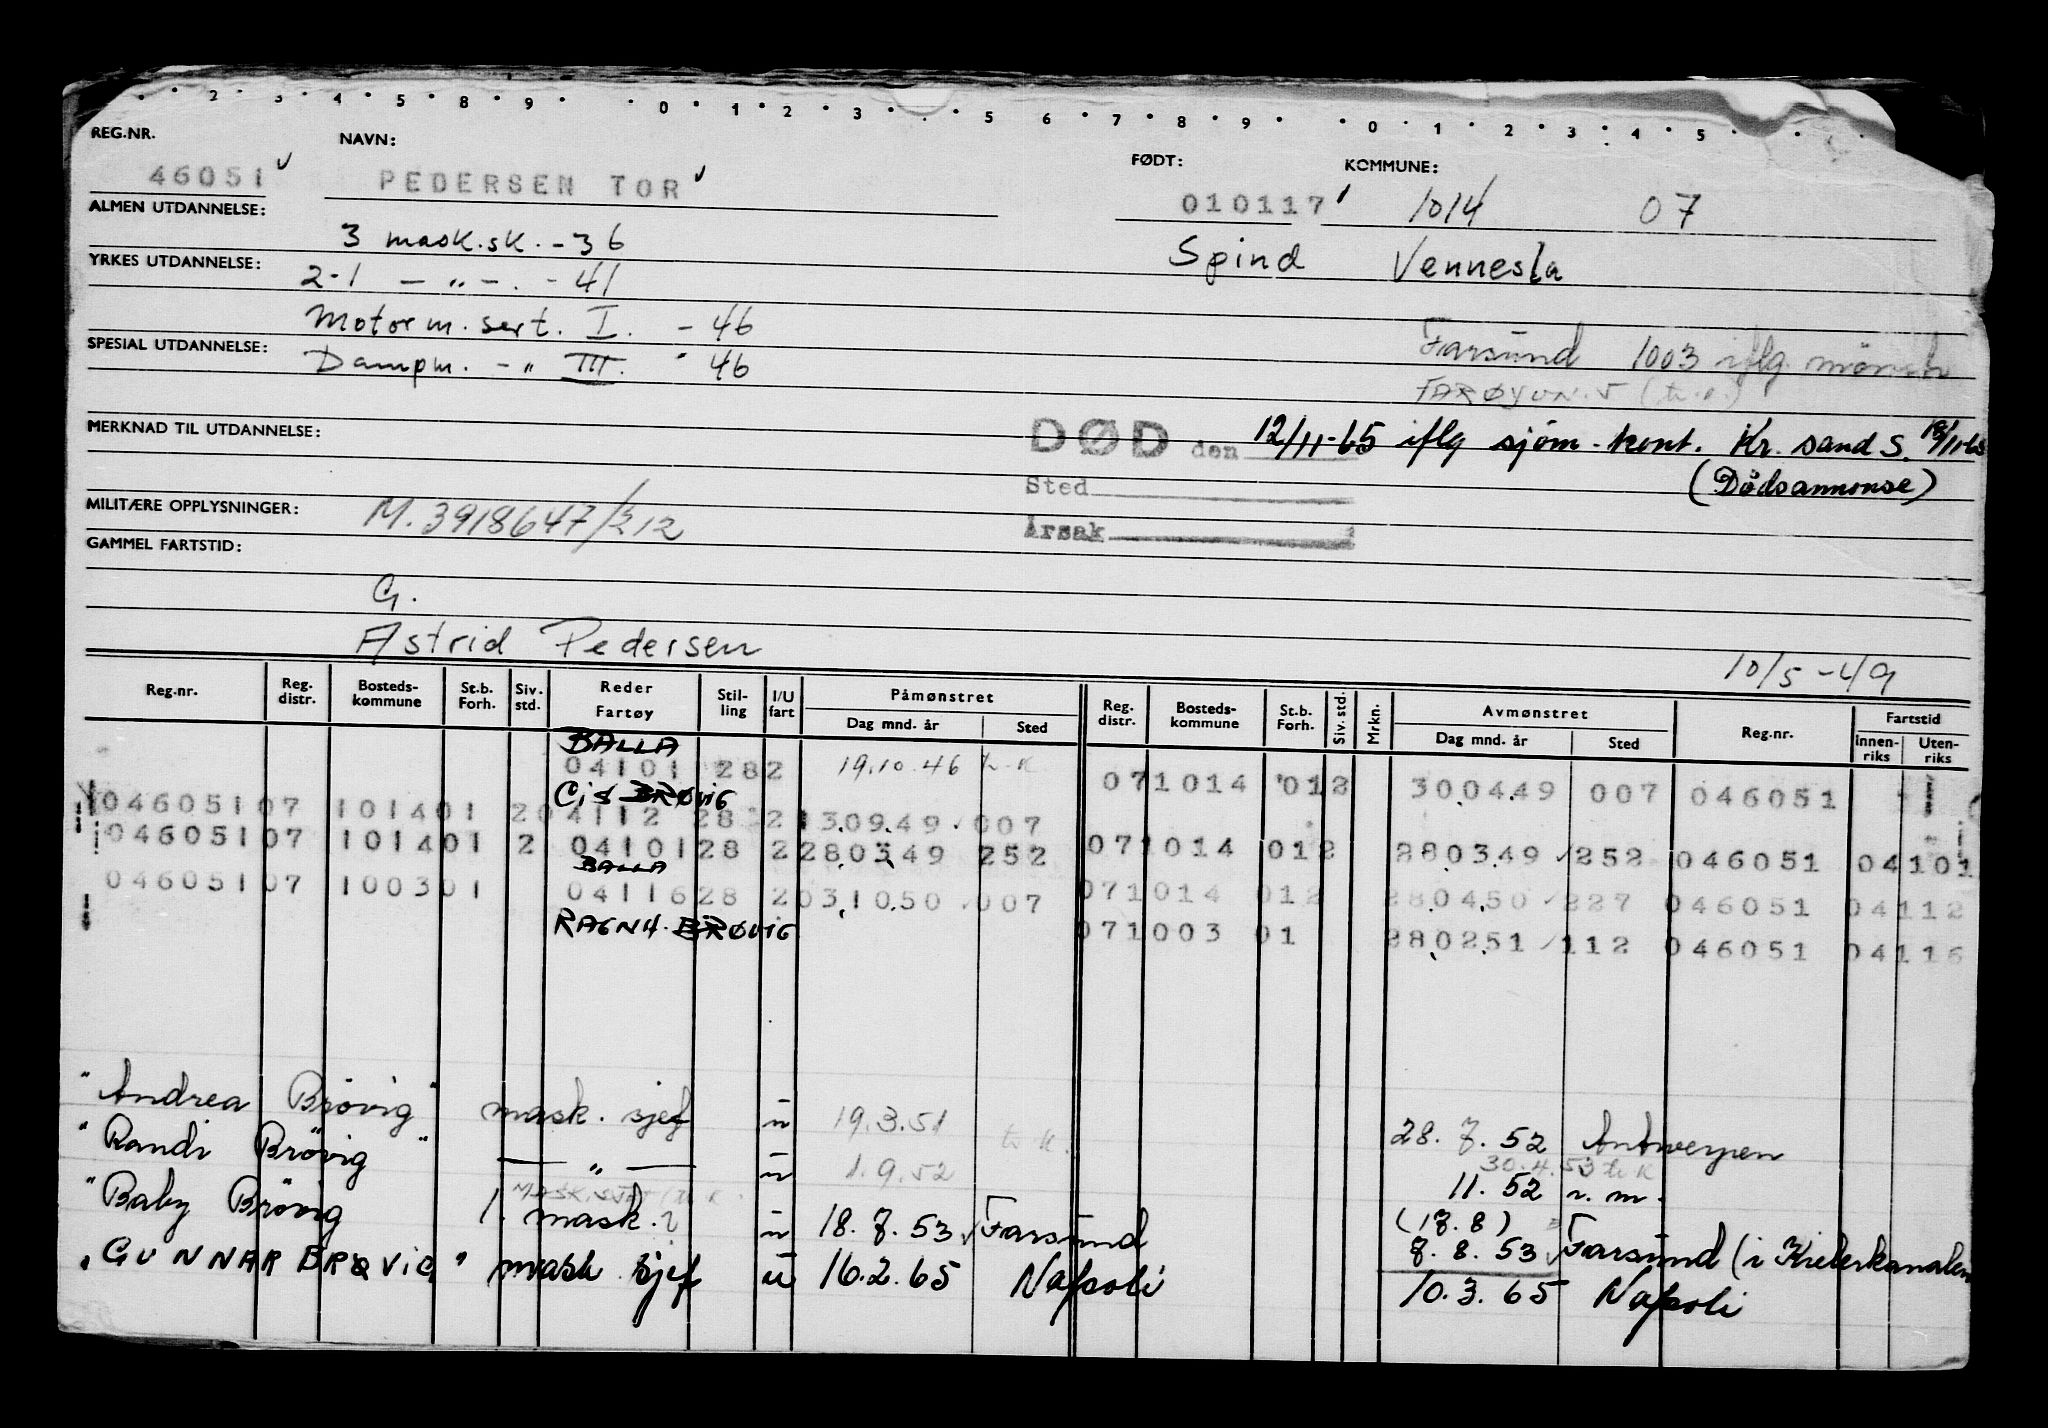 2 3 4 5 8 9 0 1 2 3 5 6 7 8 9 0 1 2 3 4 5
REG.NR. NAVN: FØDT: KOMMUNE:
46051 PEDERSEN TOR 010117 1014 07
ALMEN UTDANNELSE: 3 mask.sk. - 36 Spind Vennesla
YRKES UTDANNELSE: 2-1 — „ — . - 41
Motorm. sert. I. - 46 Farsund 1003 iflg. mönstr.
SPESIAL UTDANNELSE: Dampm. - „ III. 46
MERKNAD TIL UTDANNELSE: DØD den 12/11-65 iflg sjöm-kont. Kr. sand S. 18/11-65
(Dödsannonse)
Sted
MILITÆRE OPPLYSNINGER: M. 3918647/212 Årsak
GAMMEL FARTSTID:
G.
Astrid Pedersen 10/5-49
Reg.nr. Reg. distr. Bosteds-kommune St.b. Forh. Siv. std. Reder Fartøy Stil-ling I/U fart Påmønstret Dag mnd. år Sted Reg. distr. Bosteds-kommune St.b. Forh. Siv. std. Mrkn. Avmønstret Dag mnd. år Sted Reg.nr. Fartstid Innen-riks Uten-riks
BALLA
04101 28 2 19.10.46 071014 012 300449 007 046051
Cis BRØVIG
046051 07 1014 01 2 04112 28 2 130949 007
046051 07 1014 01 2 04101 28 2 280349 252 071014 012 280349 252 046051 04101
BALLA
046051 07 1003 01 04116 28 2 031050 007 071014 012 280450 227 046051 04112
RAGNH. BRØVIG
071003 01 280251 112 046051 04116
"Andrea Brøvig" mask. sjef u 19.3.51 28.7.52 Antwerpen
30.4.53
"Randi Brøvig" — „ — u 1.9.52 11.52
"Baby Brøvig 1. mask. u 18.7.53 Farsund (17.8)
8.8.53 Farsund (i Kielerkanalen
"GUNNAR BRØVIG" mask sjef u 16.2.65 Napoli 10.3.65 Napoli